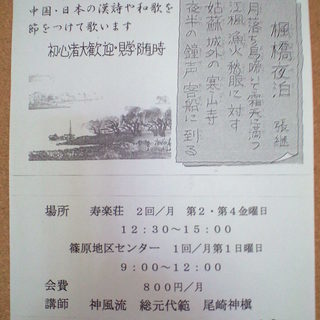 中国・日本の漢詩や和歌を
節をつけて歌います
初心者大歓迎・見学随時
楓橋夜泊 張継
月落ち烏啼いて霜天に満つ
江楓漁火愁眠に対す
姑蘇城外の寒山寺
夜半の鐘声客船に到る
場所 寿楽荘 2回/月 第2・第4金曜日
12:30〜15:00
篠原地区センター 1回/月第1日曜日
9:00〜12:00
会費 800円/月
講師 神風流 総元代範 尾崎神槇